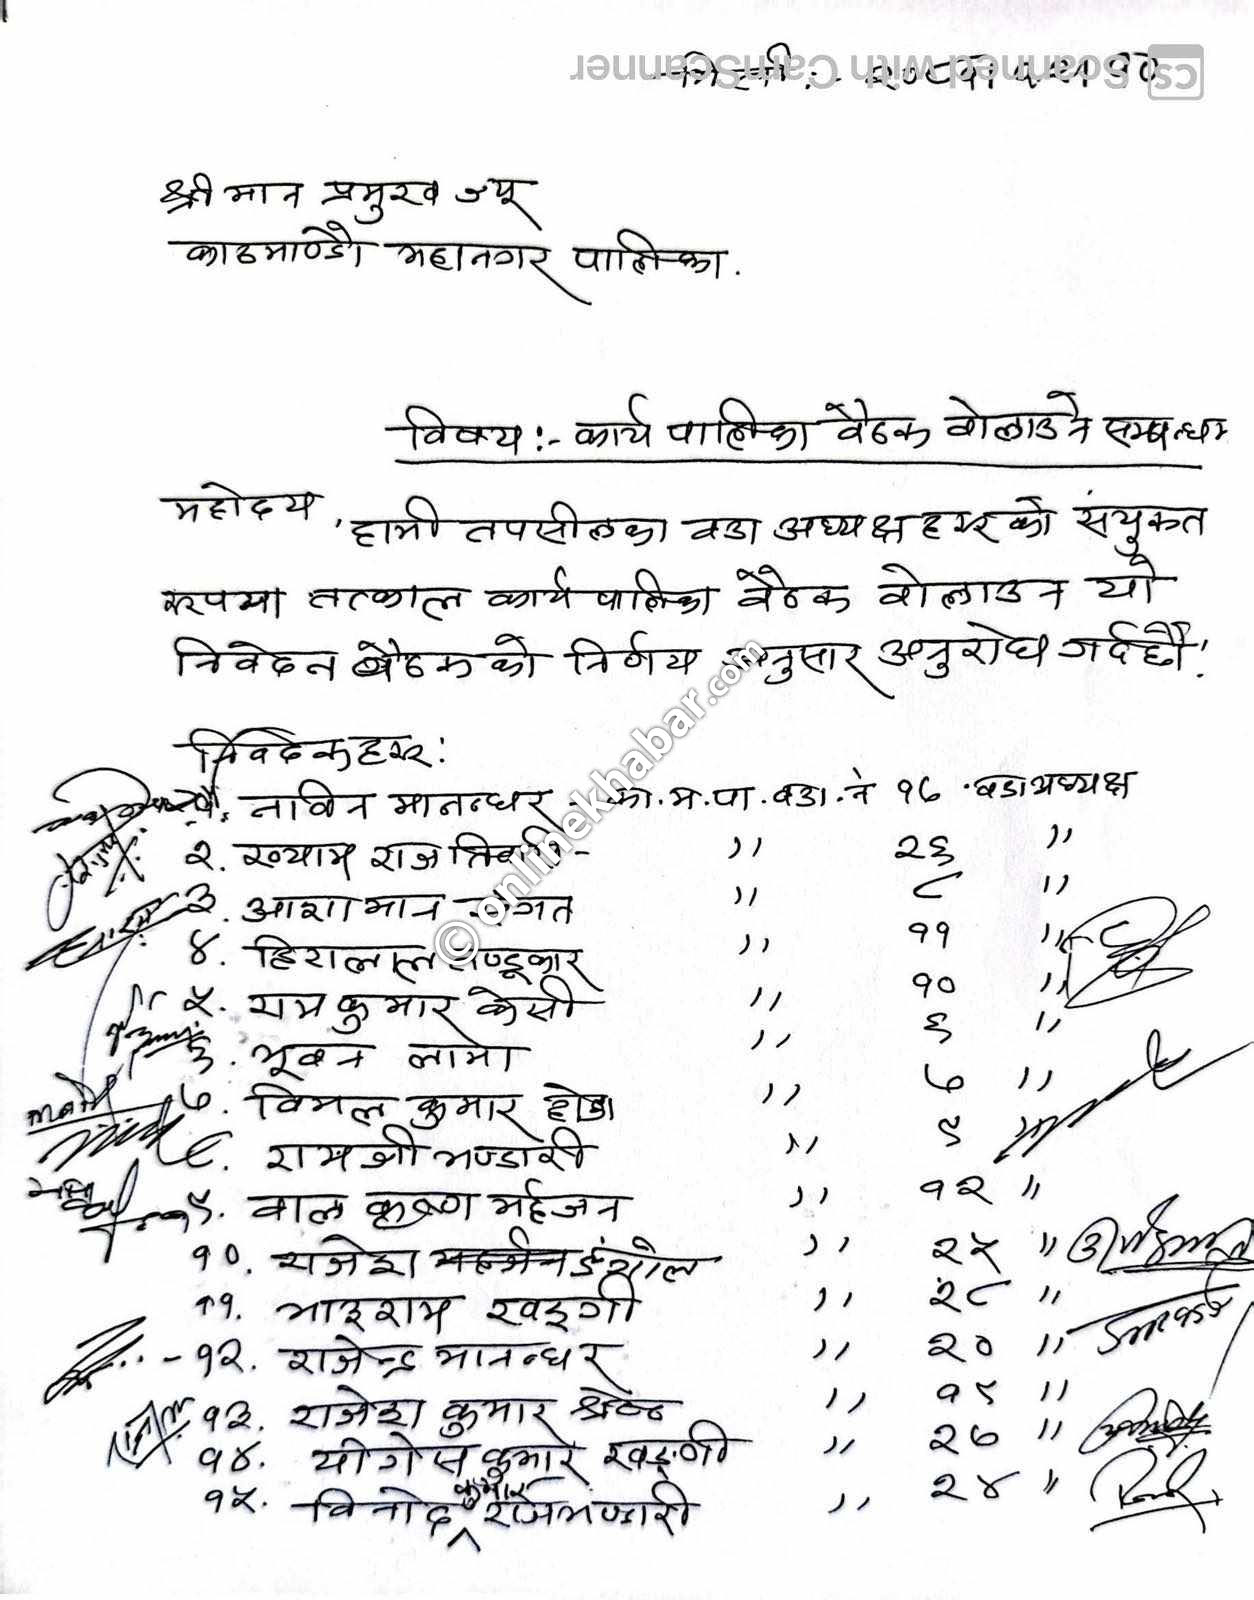 CS Scanned with CamScanner
मिती :-
श्रीमान प्रमुख ज्यू
काठमाण्डौ महानगर पालिका.
विषय :- कार्य पालिका बैठक बोलाउने सम्बन्धम
महोदय,
हामी तपसीलका वडा अध्यक्ष हरूको संयुक्त
रूपमा तत्काल कार्य पालिका बैठक बोलाउन यो
निवेदन बैठकको निर्णय अनुसार अनुरोध गर्दछौं!
निवेदकहरू:
नाविन मानन्धर - का.म.पा. वडा. नं १७ . वडा अध्यक्ष
२. राज - " २६ "
३. आशामान संगत " ८ "
४. हिरालाल तण्डूकार " ११ "
५. रामकुमार केसी " १० "
६. भूवन लामा " ६ "
७. विमल कुमार होडा " ७ "
८. रामजी भण्डारी " ९ "
९. बाल कृष्ण मर्हजन " १२ "
१०. राजेश डंगोल " २५ "
११. भाइराम खड्गी " २८ "
- १२. राजेन्द्र मानन्धर " २० "
१३. राजेश कुमार श्रेष्ठ " १९ "
१४. योगेस कुमार खड्गी " २७ "
१५. विनोद कुमार राजभण्डारी " २४ "
© onlinekhabar.com